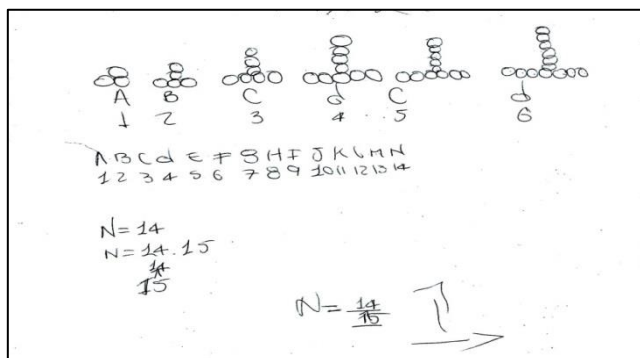 A B C d C d
1 2 3 4 5 6
A B C d E F G H I J K L M N
1 2 3 4 5 6 7 8 9 10 11 12 13 14
N=14
N=14.15
14
15
N= 14/15